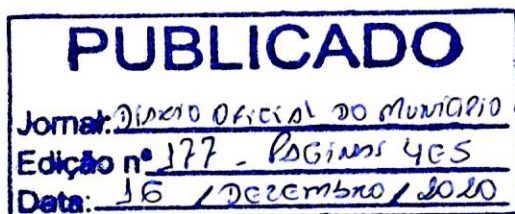 PUBLICADO
Jornal: DIÁRIO OFICIAL DO MUNICÍPIO
Edição nº 177 - PÁGINAS 4E5
Data: 16 / DEZEMBRO / 2020